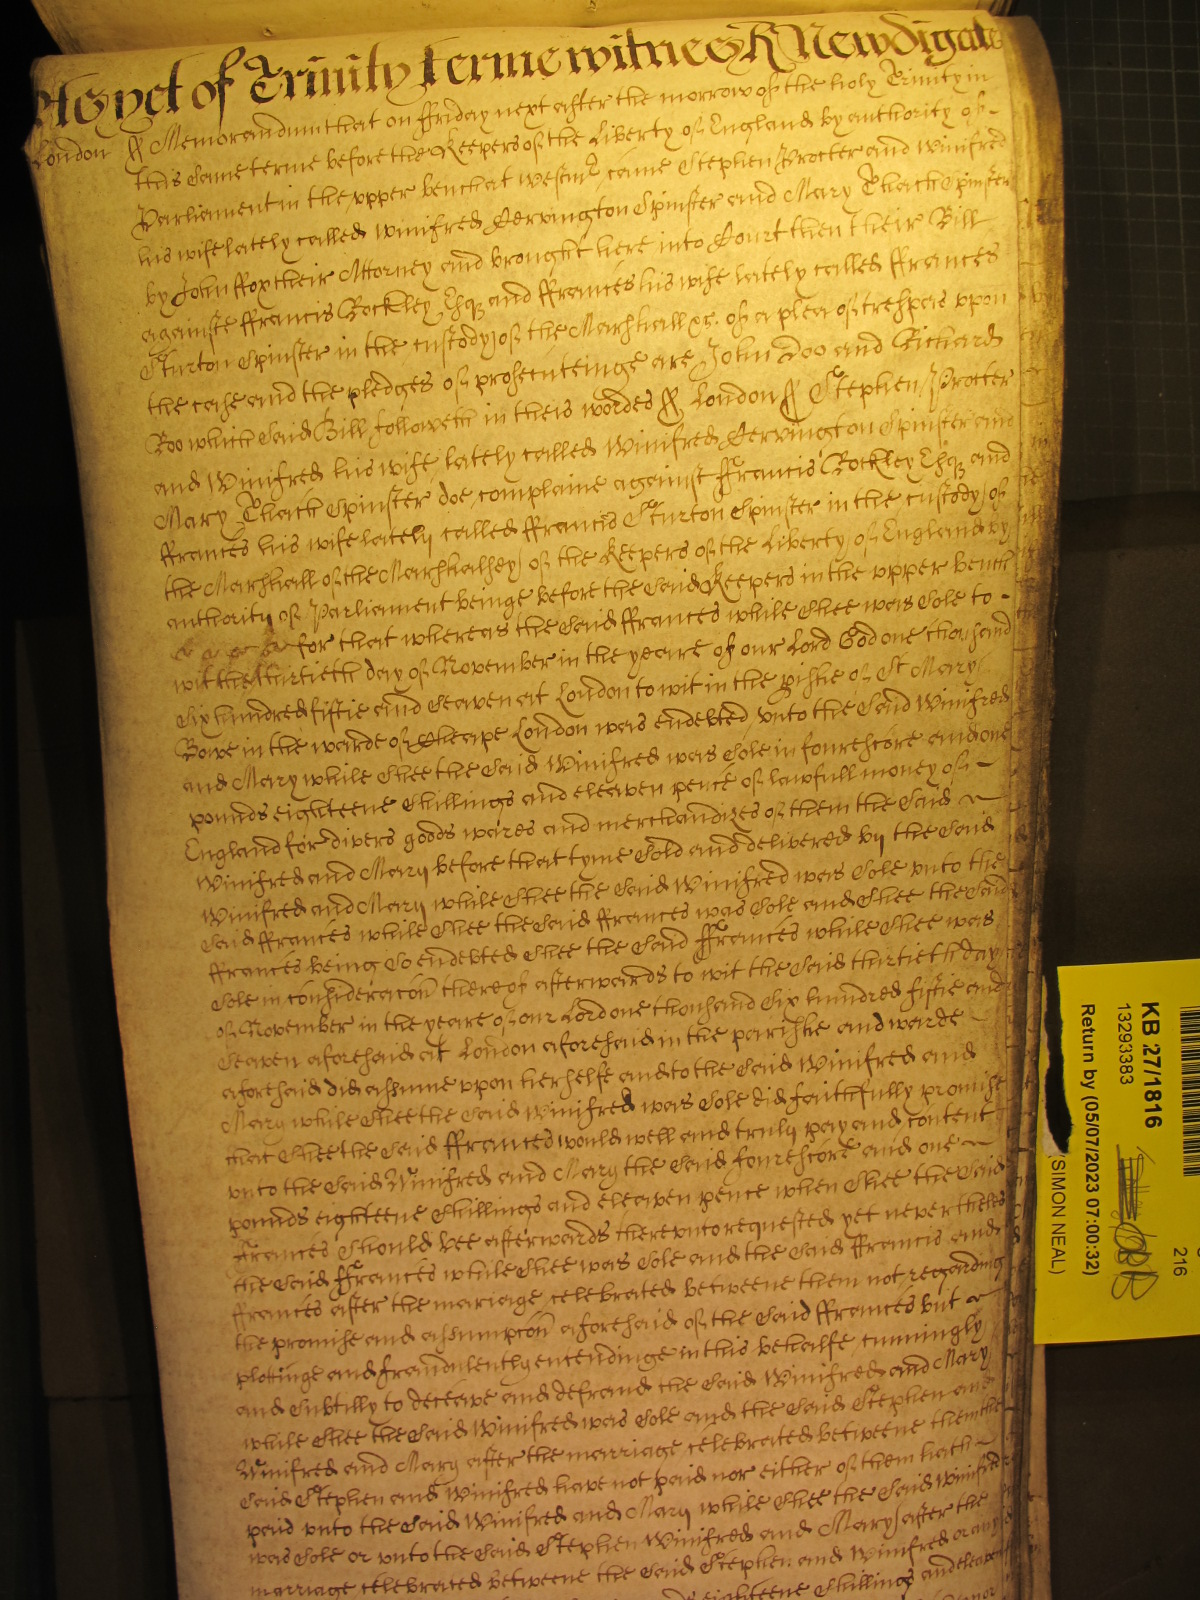 As yet of Trinity Terme witnes R Newdigate
London ss Memorandum that on ffriday next after the morrow of the holy Trinity in
this same terme before the Keepers of the Liberty of England by authority of
Parliament in the upper bench at Westmr came Stephen Procter and Winifred
his wife lately called Winifred Cervington Spinster and Mary Thach Spinster
by John ffox their Attorney and brought here into Court then their Bill
againste ffrancis Rockley Esqr and ffrances his wife lately called ffrances
Sturton Spinster in the custody of the Marshall &c. of a plea of trespas upon
the case and the pledges of prosecuteinge are John Doo and Richard
Roo which said Bill followeth in theis wordes ss London ss Stephen Procter
and Winifred his wife lately called Winifred Cervington Spinster and
Mary Thach Spinster doe complaine against ffrancis Rockley Esqr and
ffrances his wife lately called ffrancis Sturton Spinster in the custody of
the Marshall of the Marshalsey of the Keepers of the Liberty of England by
authority of Parliament beinge before the said Keepers in the upper bench
for that whereas the said ffrances while shee was sole to
wit the thirtieth day of November in the yeare of our Lord God one thousand
six hundred fiftie and seaven at London to wit in the pishe of St Mary
Bowe in the warde of Cheape London was endebted unto the said Winifred
and Mary while shee the said Winifred was sole in fourescore and one
pounds eighteene shillings and eleaven pence of lawfull money of
England for divers goods wares and merchandizes of them the said
Winifred and Mary before that tyme sold and delivered by the said
Winifred and Mary while shee the said Winifred was sole unto the
said ffrances while shee the said ffrances was sole and shee the said
ffrances being so endebted shee the said ffrances while shee was
sole in consideracon thereof afterwards to wit the said thirtieth day
of November in the yeare of our Lord one thousand six hundred fiftie and
seaven aforesaid att London aforesaid in the parishe and warde
aforesaid did assume upon herselfe and to the said Winifred and
Mary while shee the said Winifred was sole did faithfully promise
that shee the said ffrances would well and truly pay and content
unto the said Winifred and Mary the said fourescore and one
pounds eighteene shillings and eleaven pence when shee the said
ffrances should bee afterwards thereunto requested yet neverthelesse
the said ffrances while shee was sole and the said ffrancis and
ffrances after the mariage celebrated betweene them not regarding
the promise and assumpcon aforesaid of the said ffrances but
plotinge and fraudulently entendinge in this behalfe cunningly
and subtilly to deceave and defraud the said Winifred and Mary
while shee the said Winifred was sole and the said Stephen and
Winifred and Mary after the marriage celebrated betweene them the
said Stephen and Winifred have not paid nor either of them hath
paid unto the said Winifred and Mary while shee the said Winifred
was sole or unto the said Stephen Winifred and Mary after the
marriage celebrated betweene the said Stephen and Winifred or any
eighteene shillings and eleaven
KB 27/1816
13293383
Return by (05/07/2023 07:00:32)
(SIMON NEAL)
216